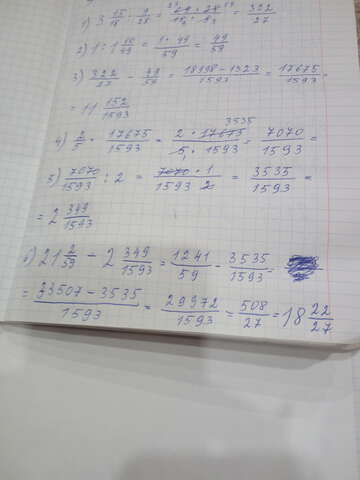 1) 3 15/18 : 9/28 = 322/27
2) 1 : 1 10/49 = 1 · 49/59 = 49/59
3) 322/27 - 49/59 = 18998 - 1323/1593 = 17675/1593 =
= 11 152/1593
4) 2/5 · 17675/1593 = 2 · 17675 3535/5 1 · 1593 = 7070/1593 =
5) 7070/1593 : 2 = 7070 · 1/1593 · 2 = 3535/1593 =
= 2 349/1593
6) 21 2/59 - 2 349/1593 = 1241/59 - 3535/1593 =
= 33507 - 3535/1593 = 29972/1593 = 508/27 = 18 22/27